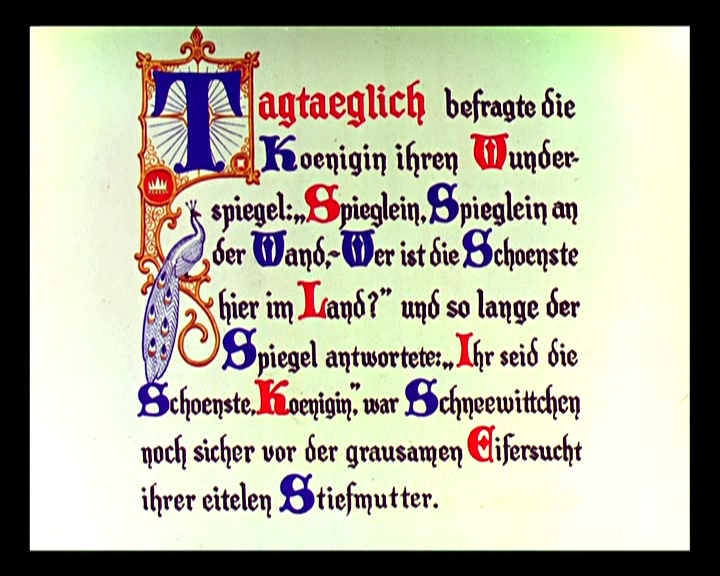 Tagtaeglich befragte die
Koenigin ihren Wunder-
spiegel:„Spieglein, Spieglein an
der Wand,-Wer ist die Schoenste
hier im Land?" und so lange der
Spiegel antwortete:„Ihr seid die
Schoenste, Koenigin," war Schneewittchen
noch sicher vor der grausamen Eifersucht
ihrer eitelen Stiefmutter.